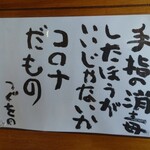 手指の消毒
したほうが
いいじゃないか
コロナ
だもの